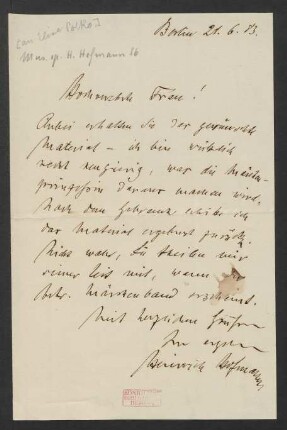 [an Elise Polko]
Mscr. ep. H. Hofmann 16
Berlin 21. 6. 83.
Hochverehrte Frau!
Anbei erhalten Sie das gewünschte
Material – ich bin wirklich
recht neugierig, was die Märchen-
prinzessin daraus machen wird.
Nach dem Gebrauch erbitte ich
das Material ergebenst zurück.
Nicht wahr, Sie theilen mir
seiner Zeit mit, wann
betr. Märchenband erscheint.
Mit herzlichen Grüßen
Ihr ergeb.
Heinrich Hofmann